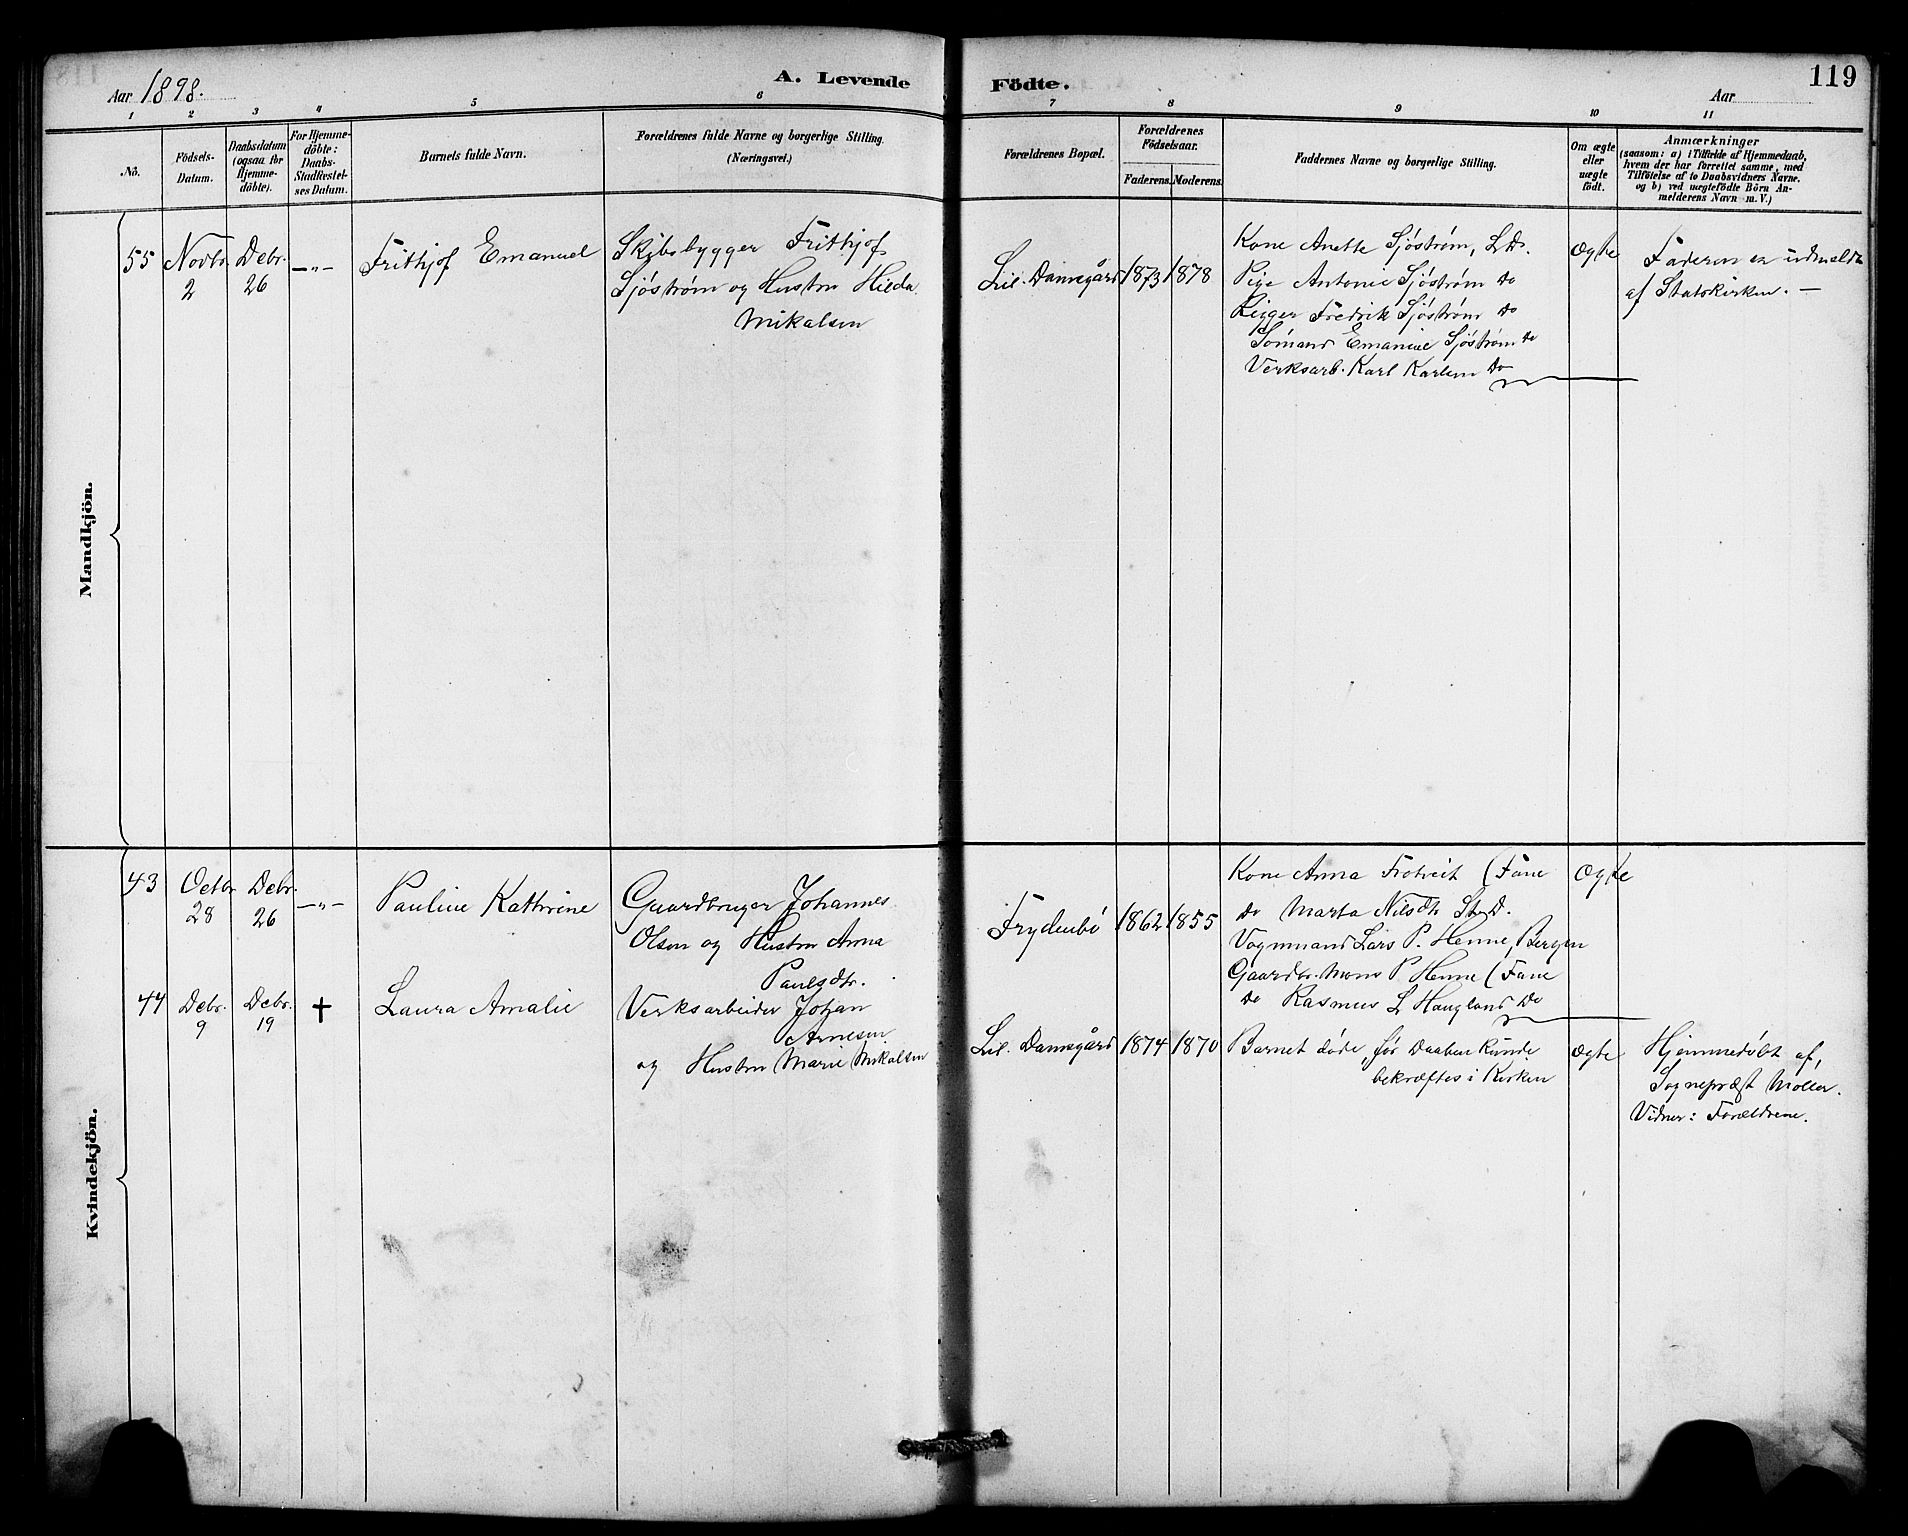 Aar 1898.
A. Levende Födte.
Aar
119
1 2 3 4 5 6 7 8 9 10 11
No.
Födsels-Datum.
Daabsdatum (ogsaa for Hjemmedöbte).
For Hjemmedöbte: Daabs-Stadfæstelses Datum.
Barnets fulde Navn.
Forældrenes fulde Navne og borgerlige Stilling. (Næringsvei.)
Forældrenes Bopæl.
Forældrenes Födselsaar.
Faderens. Moderens.
Faddernes Navne og borgerlige Stilling.
Om ægte eller uægte födt.
Anmærkninger
(saasom: a) i Tilfælde af Hjemmedaab,
hvem der har forrettet samme, med
Tilföielse af to Daabsvidners Navne.
og b) ved uægtefödte Börn An-
melderens Navn m. V.)
Mandkjön.
55
Novbr. 2
Debr. 26
—„—
Frithjof Emanuel
Skibsbygger Frithjof
Sjöström og Hustru Hilda
Mikalsen
Lil. Damsgård
1873
1878
Kone Anette Sjöström, L.D.
Pige Antonie Sjöström Do
Rigger Fredrik Sjöström Do
Sömand Emanuel Sjöström Do
Verksarb. Karl Karlsen Do
Ægte
Faderen er udmeldt
af Statskirken. —
Kvindekjön.
43
Octbr 28
Debr. 26
—„—
Pauline Kathrine
Gaardbruger Johannes
Olsen og Hustru Anna
Paulsdtr.
Frydenbö
1862
1855
Kone Anna (Fane
Do Marta Nilsdtr
Vognmand Lars P. Henne, Bergen
Gaardbr. Mons P Henne (Fane
Do Rasmus L Haugland Do
Ægte
44
Debr. 9
Debr. 19
†
Laura Amalie
Verksarbeider Johan
Arnesen
og Hustru Marie Mikalsen
Lil. Damsgård
1874
1870
Barnet döde, för Daaben kunde
bekræftes i Kirken
Ægte
Hjemmedöbt af,
Sognepræst Möller.
Vidner: Forældrene.